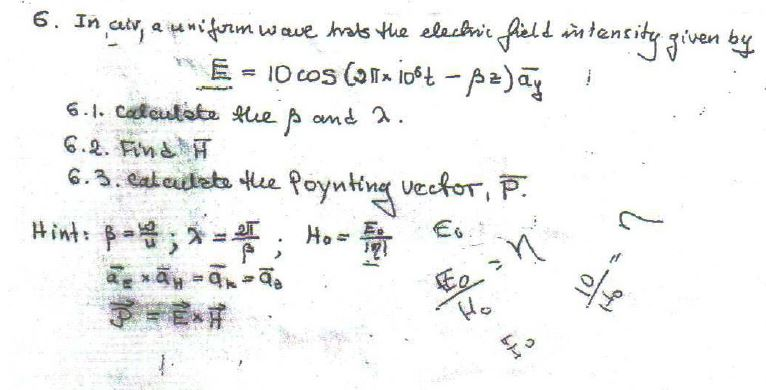 6. In air, a uniform wave has the electric field intensity given by
E = 10 cos (2π×10⁶t − βz) a̅y
6.1. Calculate the β and λ.
6.2. Find H̅
6.3. Calculate the Poynting vector, P̅.
Hint: β = ω/u ; λ = 2π/β ; H₀ = E₀/|η|
a̅E × a̅H = a̅k = a̅z
P⃗ = E⃗ × H⃗
E₀
E₀/H₀ = η
H₀
10/H₀ = η